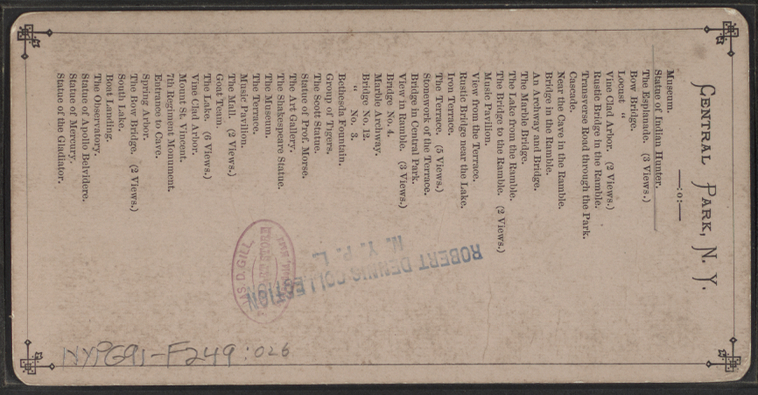 CENTRAL PARK, N. Y.
—:o:—
Museum.
Statue of Indian Hunter.
The Esplanade. (3 Views.)
Bow Bridge.
Locust "
Vine Clad Arbor. (2 Views.)
Rustic Bridge in the Ramble.
Transverse Road through the Park.
Cascade.
Near the Cave in the Ramble.
Bridge in the Ramble.
An Archway and Bridge.
The Marble Bridge.
The Lake from the Ramble.
The Bridge to the Ramble. (2 Views.)
Music Pavilion.
View from the Terrace.
Rustic Bridge near the Lake.
Iron Terrace.
The Terrace. (5 Views.)
Stonework of the Terrace.
Bridge in Central Park.
View in Ramble. (3 Views.)
Bridge No. 4.
Marble Archway.
Bridge No. 12.
" No. 3.
Bethesda Fountain.
Group of Tigers.
The Scott Statue.
Statue of Prof. Morse.
The Art Gallery.
The Shakespeare Statue.
The Museum.
The Terrace.
Music Pavilion.
The Mall. (2 Views.)
Goat Team.
The Lake. (6 Views.)
Vine Clad Arbor.
Mount St. Vincent.
7th Regiment Monument.
Entrance to Cave.
Spring Arbor.
The Bow Bridge. (2 Views.)
South Lake.
Boat Landing.
The Observatory.
Statue of Apollo Belvidere.
Statue of Mercury.
Statue of the Gladiator.
ROBERT DENNIS COLLECTION
N. Y. P. L.
NYPG91-F249:026